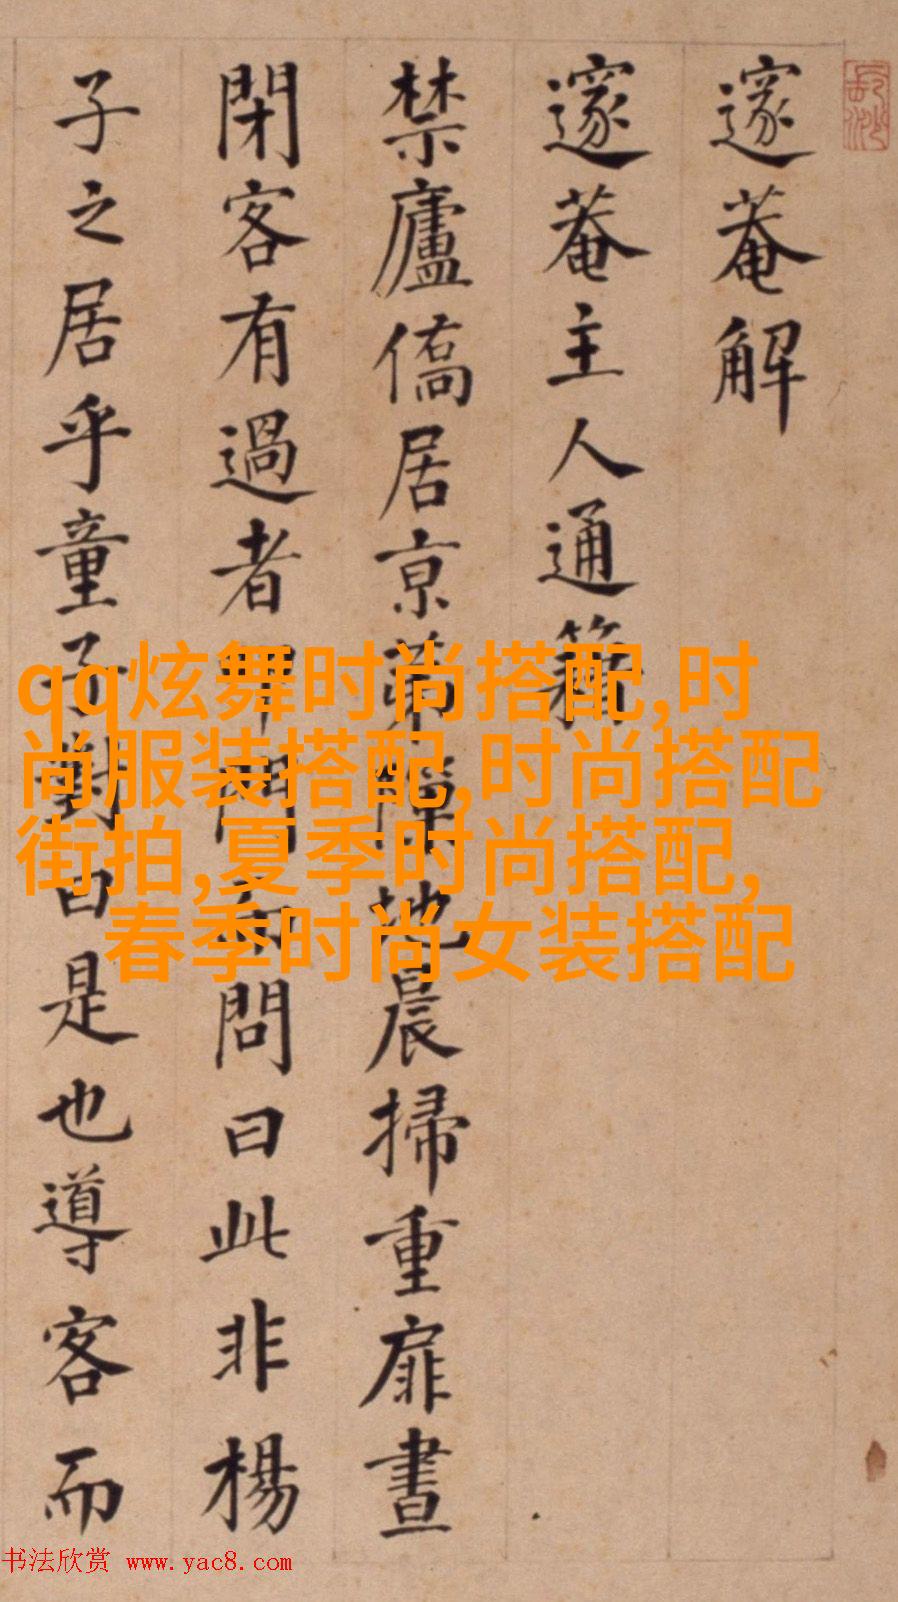 長沙
邃菴解
邃菴主人通籍
禁廬僑居京第地晨掃重扉晝
閉客有過者叩門而問曰此非楊
子之居乎童子對曰是也導客而
qq炫舞时尚搭配,时
尚服装搭配,时尚搭配
街拍,夏季时尚搭配,
春季时尚女装搭配
书法欣赏 www.yac8.com